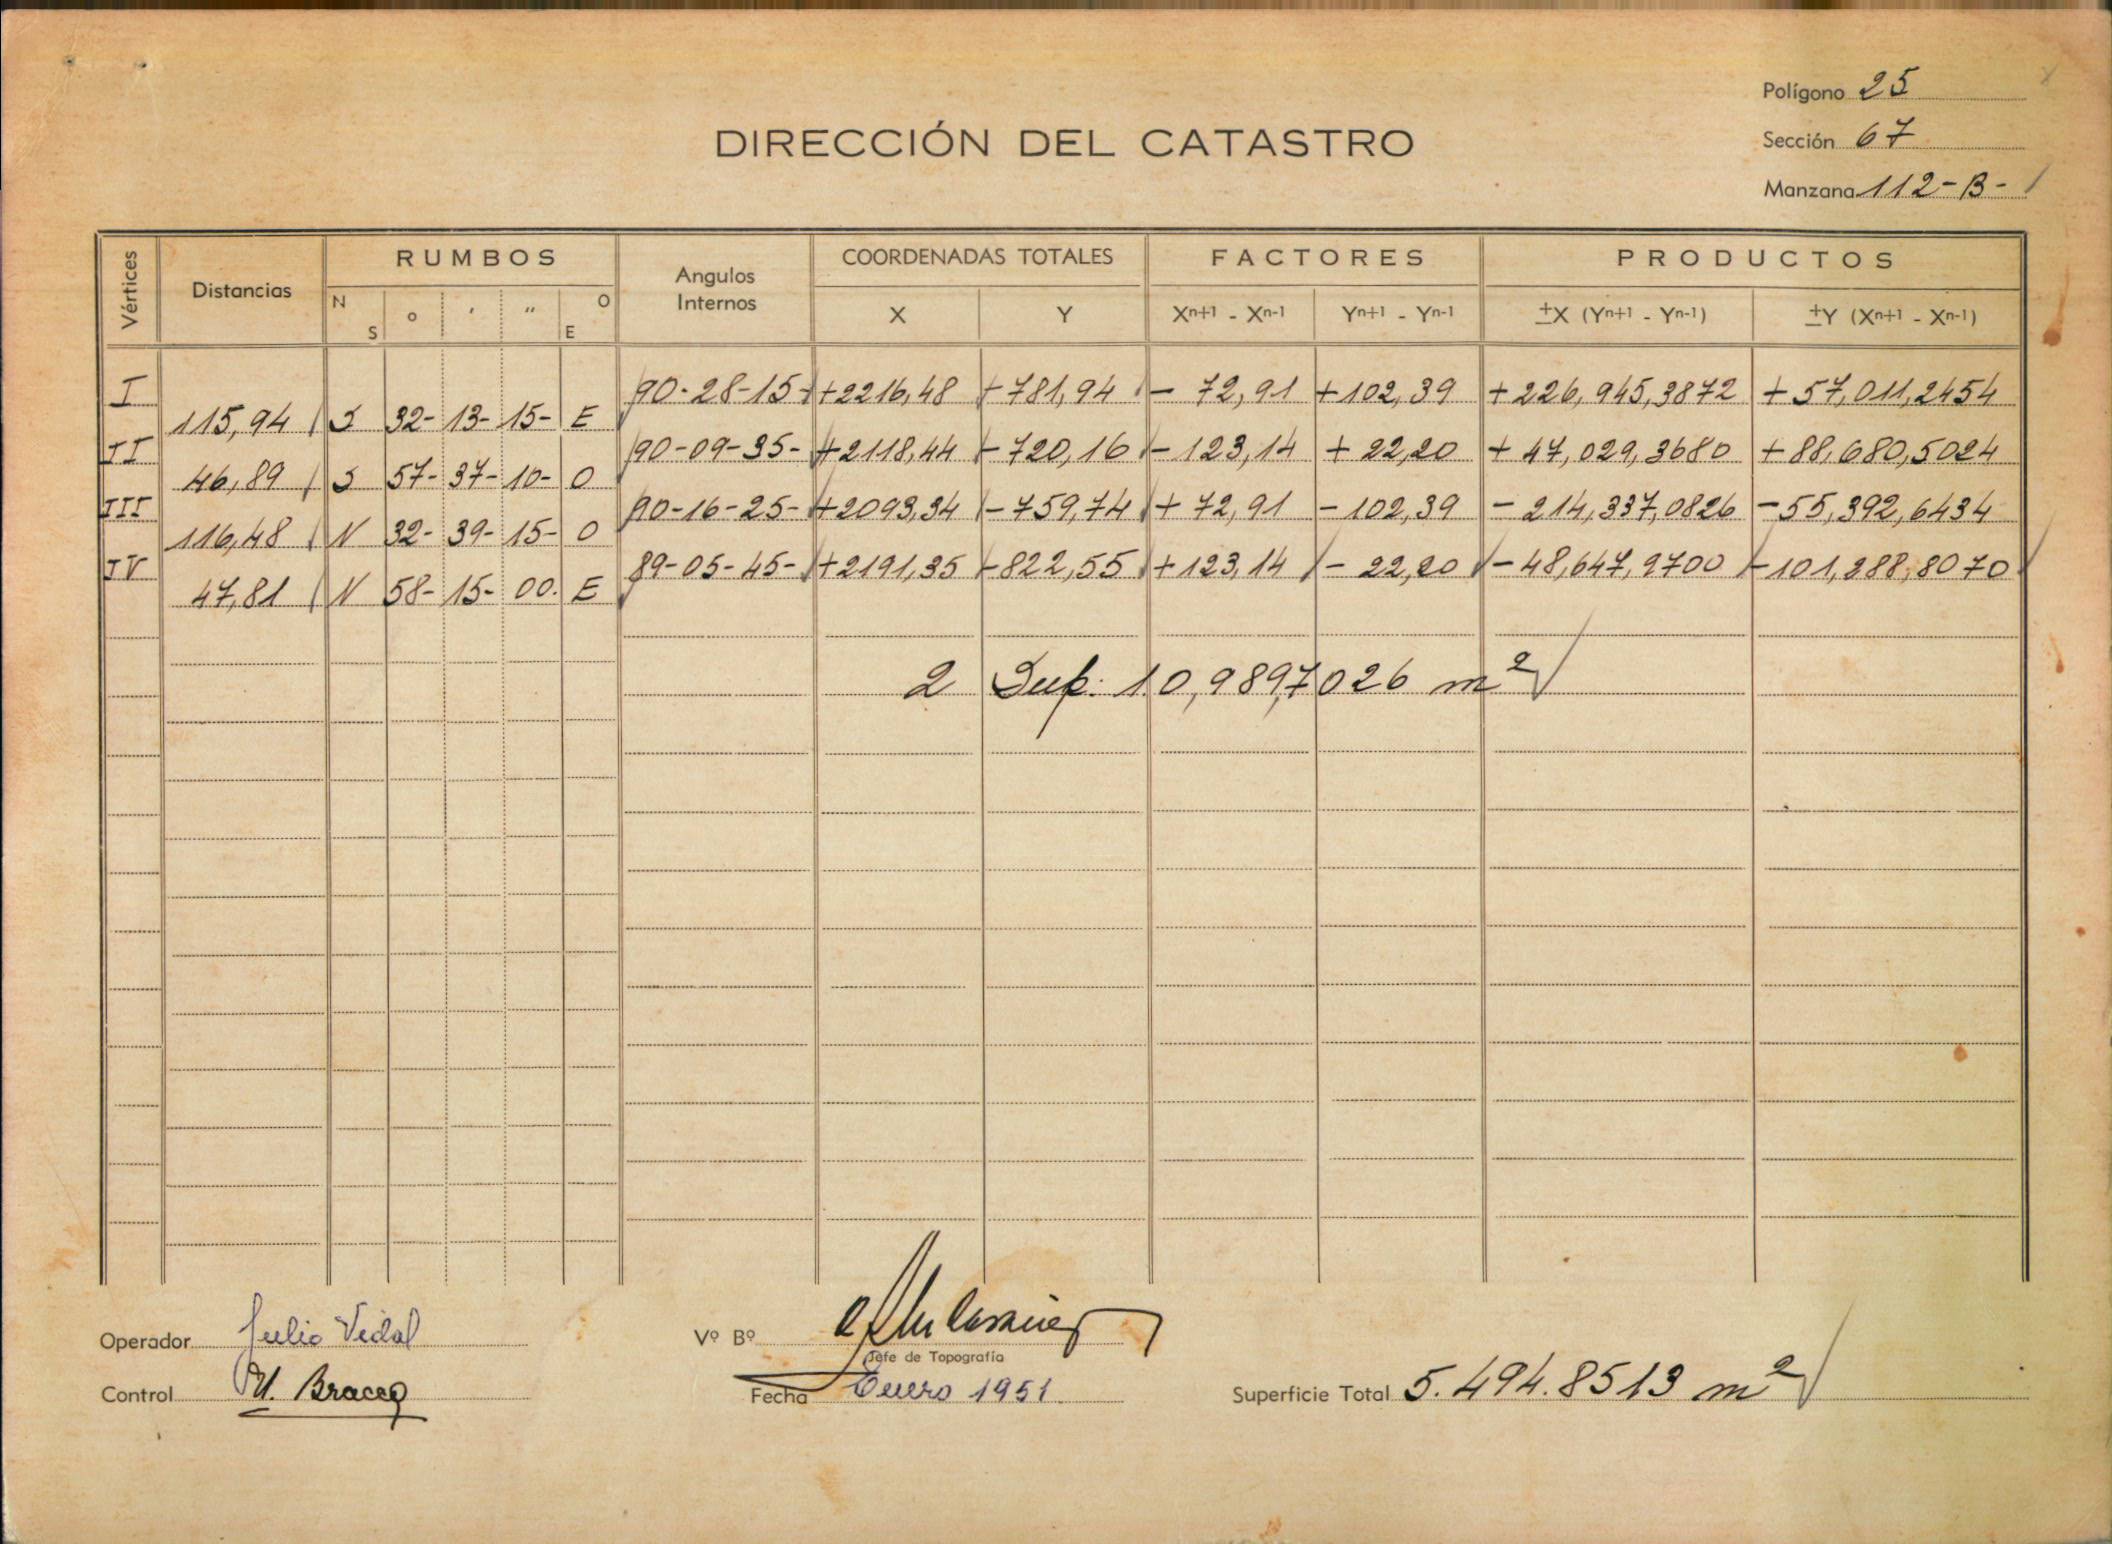 Polígono 25
DIRECCIÓN DEL CATASTRO
Sección 67
Manzana 112-B-
Vértices
Distancias
RUMBOS
N S o ' " O E
Angulos Internos
COORDENADAS TOTALES
X Y
FACTORES
Xn+1 - Xn-1 Yn+1 - Yn-1
PRODUCTOS
±X (Yn+1 - Yn-1) ±Y (Xn+1 - Xn-1)
I 90-28-15- +2216,48 -781,94 - 72,91 +102,39 +226,945,3872 +57,011,2454
115,94 S 32- 13- 15- E
II 90-09-35- +2118,44 -720,16 -123,14 + 22,20 + 47,029,3680 +88,680,5024
46,89 S 57- 37- 10- O
III 90-16-25- +2093,34 -759,74 + 72,91 -102,39 - 214,337,0826 -55,392,6434
116,48 N 32- 39- 15- O
IV 89-05-45- +2191,35 -822,55 +123,14 - 22,20 -48,647,9700 -101,288,8070
47,81 N 58- 15- 00. E
2 Sup. 10,989,7026 m²
Operador Julio Vidal
Vº Bº
Jefe de Topografía
Control M. Bracco
Fecha Enero 1951
Superficie Total 5.494.8513 m²